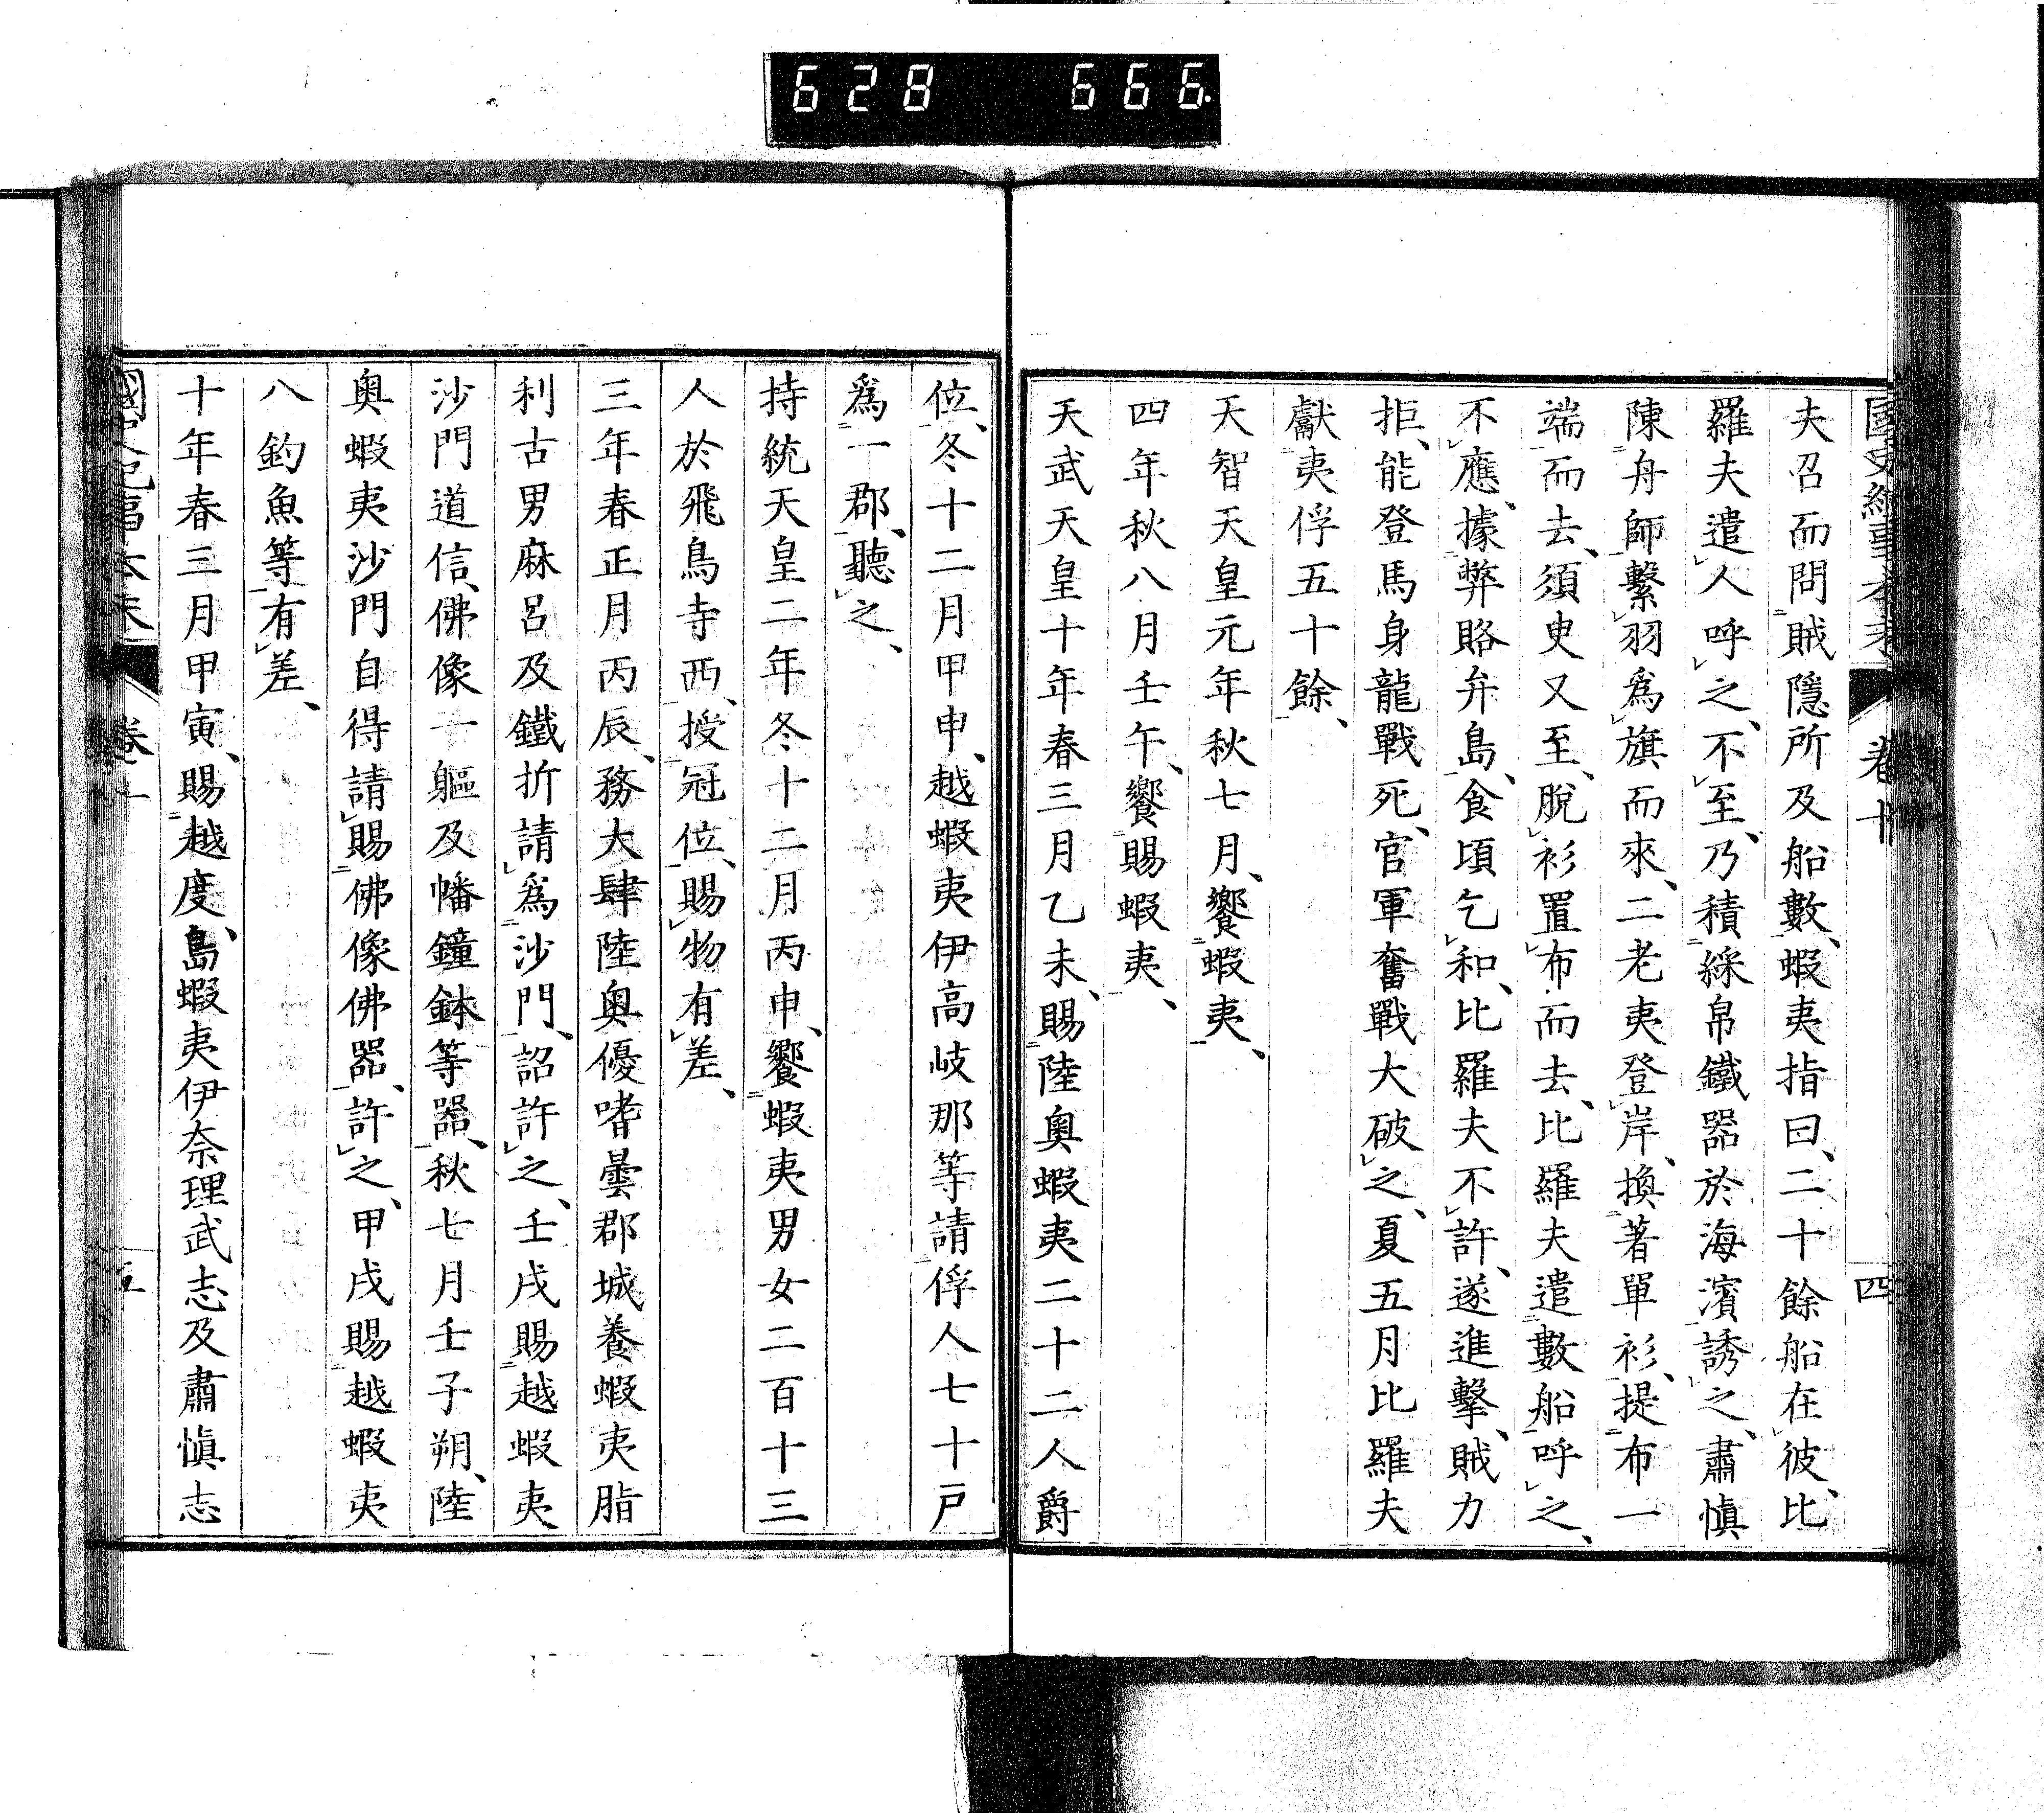 628 666.
國史紀事本末 卷十 四
夫召而問賊隱所及船數、蝦夷指曰、二十餘船在彼、比
羅夫遣人呼之、不至、乃積綵帛鐵器於海濱誘之、肅愼
陳舟師繫羽爲旗而來、二老夷登岸、換著單衫、提布一
端而去、須臾又至、脫衫置布而去、比羅夫遣數船呼之、
不應、據弊賂弁島、食頃乞和、比羅夫不許、遂進擊、賊力
拒、能登馬身龍戰死、官軍奮戰大破之、夏五月比羅夫
獻夷俘五十餘、
天智天皇元年秋七月、饗蝦夷、
四年秋八月壬午、饗賜蝦夷、
天武天皇十年春三月乙未、賜陸奧蝦夷二十二人爵
位、冬十二月甲申、越蝦夷伊高岐那等請俘人七十戶
爲一郡、聽之、
持統天皇二年冬十二月丙申、饗蝦夷男女二百十三
人於飛鳥寺西、授冠位、賜物有差、
三年春正月丙辰、務大肆陸奧優嗜曇郡城養蝦夷脂
利古男麻呂及鐵折請爲沙門、詔許之、壬戌賜越蝦夷
沙門道信、佛像一軀及幡鐘鉢等器、秋七月壬子朔、陸
奧蝦夷沙門自得請賜佛像佛器、許之、甲戌賜越蝦夷
八釣魚等有差、
十年春三月甲寅、賜越度島蝦夷伊奈理武志及肅愼志
國史紀事本末 卷十 五